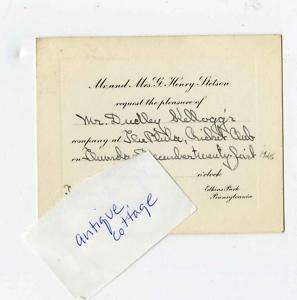 Mr. and Mrs. G. Henry Stetson
request the pleasure of
Mr. Dudley Kellogg's
company at The Phila Cricket Club
on Thursday December twenty first
o'clock
Elkins Park
Pennsylvania
antique
cottage